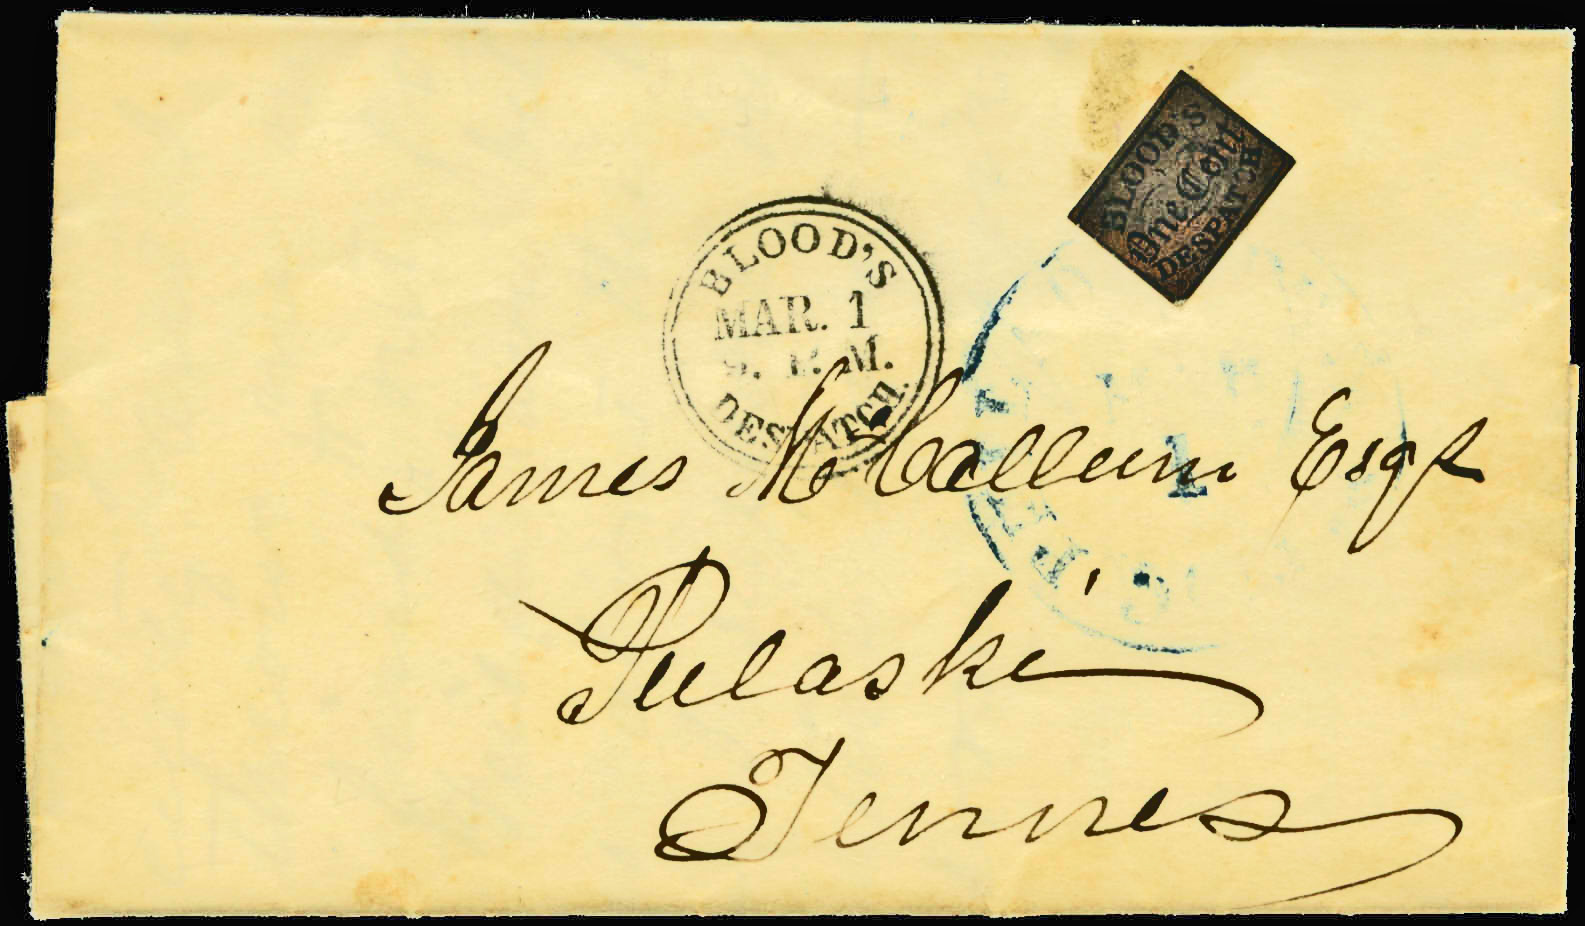 BLOOD'S
One Cent
DESPATCH
BLOOD'S
MAR. 1
P. M.
DESPATCH.
James McCallum Esqr
Pulaski
Tennes